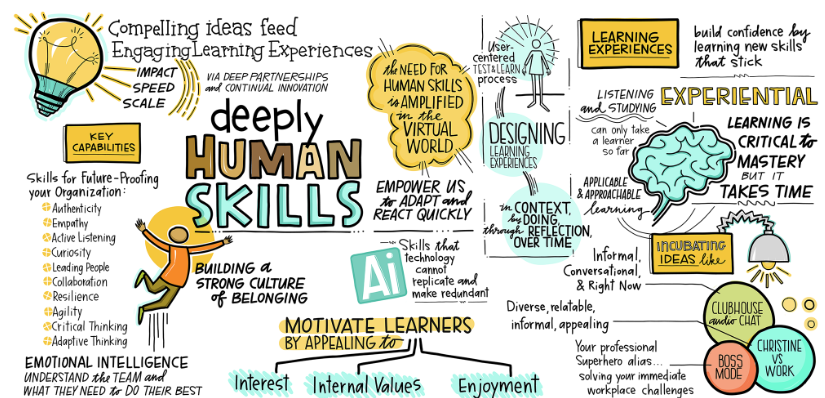 Compelling ideas feed
Engaging Learning Experiences
IMPACT
SPEED
SCALE
VIA DEEP PARTNERSHIPS
and CONTINUAL INNOVATION
KEY
CAPABILITIES
Skills for Future-Proofing
your Organization:
Authenticity
Empathy
Active Listening
Curiosity
Leading People
Collaboration
Resilience
Agility
Critical Thinking
Adaptive Thinking
EMOTIONAL INTELLIGENCE
UNDERSTAND the TEAM and
WHAT THEY NEED to DO THEIR BEST
deeply
HUMAN
SKILLS
BUILDING a
STRONG CULTURE
of BELONGING
the NEED FOR
HUMAN SKILLS
is AMPLIFIED
in the
VIRTUAL
WORLD
EMPOWER US
to ADAPT and
REACT QUICKLY
Ai
Skills that
technology
cannot
replicate and
make redundant
MOTIVATE LEARNERS
BY APPEALING to
Interest
Internal Values
Enjoyment
User-
centered
TEST & LEARN
process
DESIGNING
LEARNING
EXPERIENCES
in CONTEXT,
by DOING,
through REFLECTION,
OVER TIME
LEARNING
EXPERIENCES
build confidence by
learning new skills
that stick
LISTENING
and STUDYING
can only take
a learner
so far
EXPERIENTIAL
LEARNING IS
CRITICAL to
MASTERY
BUT IT
TAKES TIME
APPLICABLE
& APPROACHABLE
learning
INCUBATING
IDEAS like
Informal,
Conversational,
& Right Now
Diverse, relatable,
informal, appealing
Your professional
Superhero alias...
solving your immediate
workplace challenges
CLUBHOUSE
audio CHAT
BOSS
MODE
CHRISTINE
VS
WORK